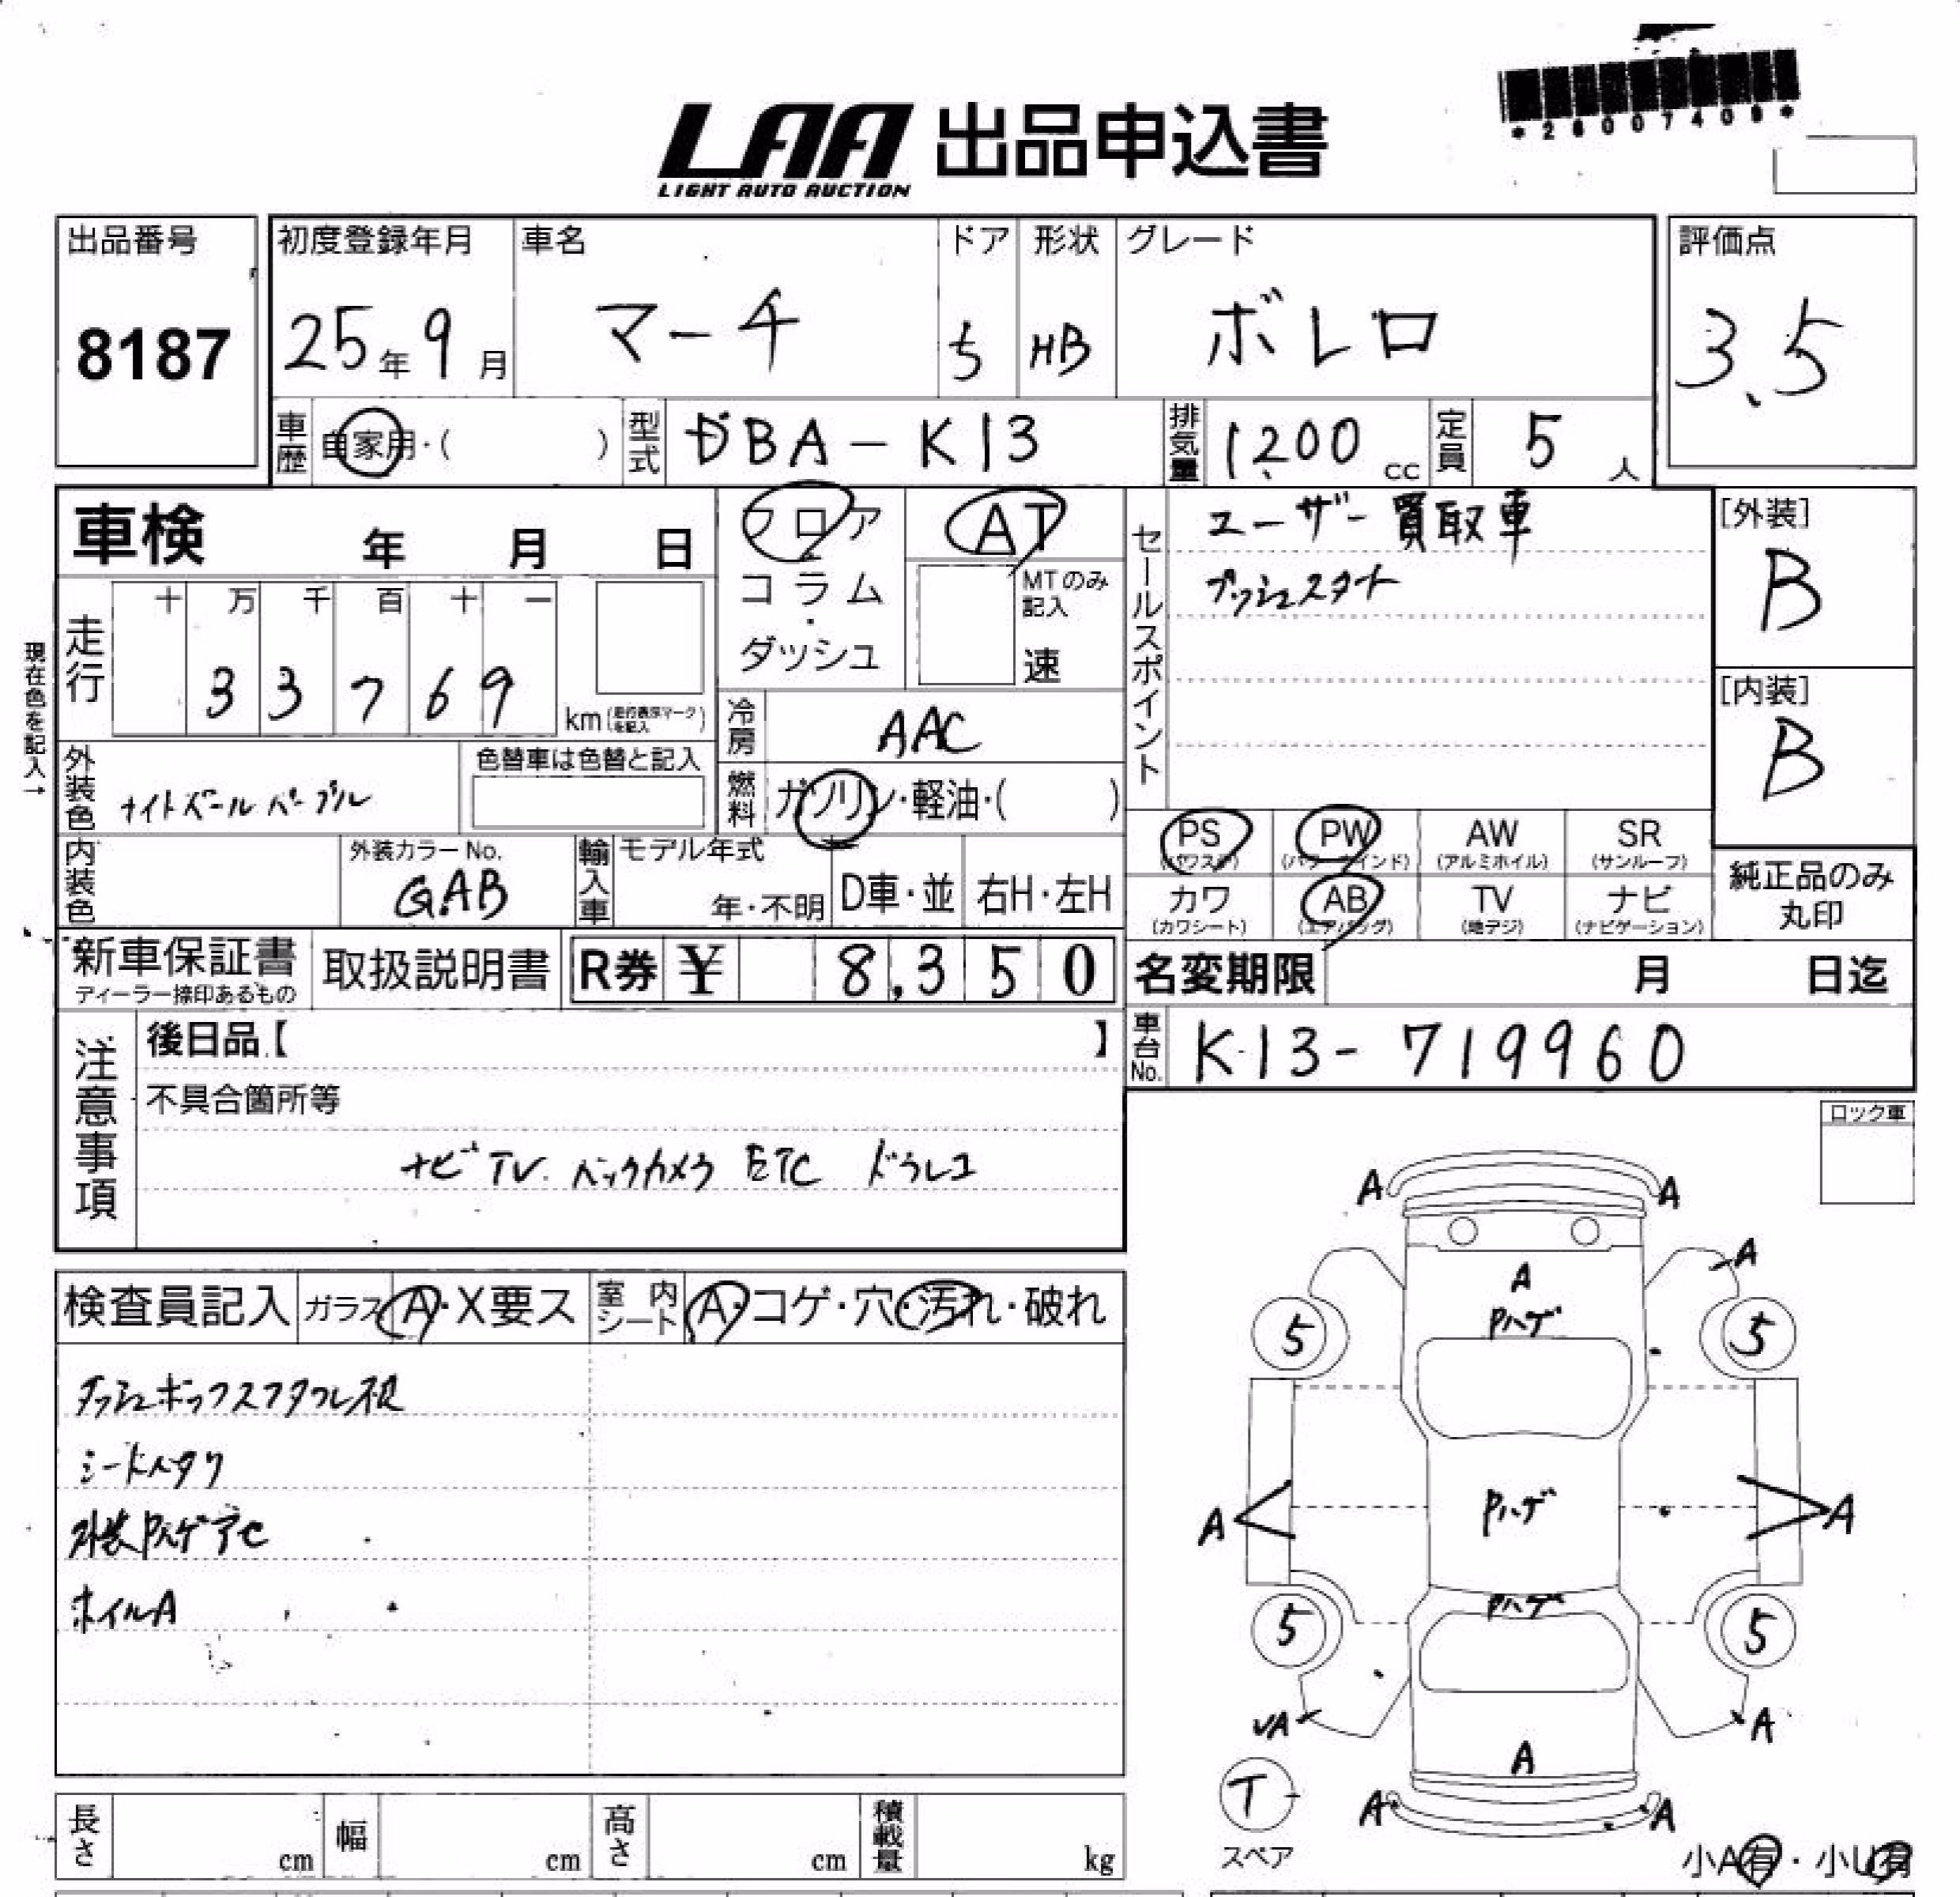 *26007409*
LAA 出品申込書
LIGHT AUTO AUCTION
出品番号
8187
初度登録年月
25年9月
車名
マーチ
ドア
5
形状
HB
グレード
ボレロ
評価点
3.5
車歴
自家用・( )
型式
DBA-K13
排気量
1200 cc
定員
5人
車検 年 月 日
フロア
コラム・
ダッシュ
AT
MTのみ記入
速
セールスポイント
ユーザー買取車
プッシュスタート
[外装]
B
[内装]
B
現在色を記入→
走行
十 万 千 百 十 一
3 3 7 6 9
km(走行表示マークを記入)
冷房
AAC
燃料
ガソリン・軽油・( )
外装色
ナイトベールパープル
色替車は色替と記入
内装色
外装カラーNo.
GAB
輸入車
モデル年式
年・不明
D車・並
右H・左H
PS
(パワステ)
PW
(パワーウインド)
AW
(アルミホイル)
SR
(サンルーフ)
カワ
(カワシート)
AB
(エアバッグ)
TV
(地デジ)
ナビ
(ナビゲーション)
純正品のみ
丸印
新車保証書
ディーラー捺印あるもの
取扱説明書
R券 ¥ 8,350
名変期限 月 日迄
車台No.
K13-719960
注意事項
後日品【 】
不具合箇所等
ナビTV. バックカメラ ETC ドラレコ
ロック車
検査員記入
ガラス A・X要ス
室内シート A・コゲ・穴・汚れ・破れ
シートヘタリ
外装Pハゲアセ
ホイルA
A
A
A
A
Pハゲ
5
5
Pハゲ
A
A
Pハゲ
5
5
VA
A
A
A
A
T
スペア
小A有・小U有
長さ cm
幅 cm
高さ cm
積載量 kg